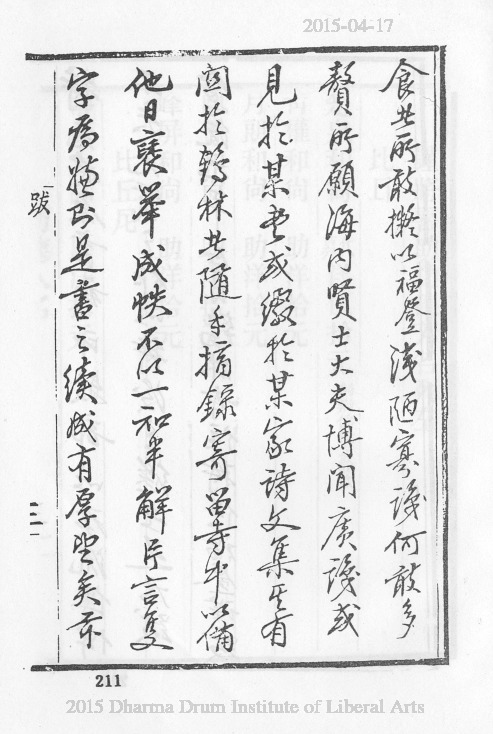 2015-04-17
食者所敢擬以福登淺陋寡識何敢多
贅所願海內賢士大夫博聞廣識或
見於某書或綴於某家詩文集其有
關於鶴林者隨手摘錄寄留寺中以備
他日裒舉成帙不以一知半解片言隻
字為嫌則是書之續成有厚望矣亦
跋
211
2015 Dharma Drum Institute of Liberal Arts